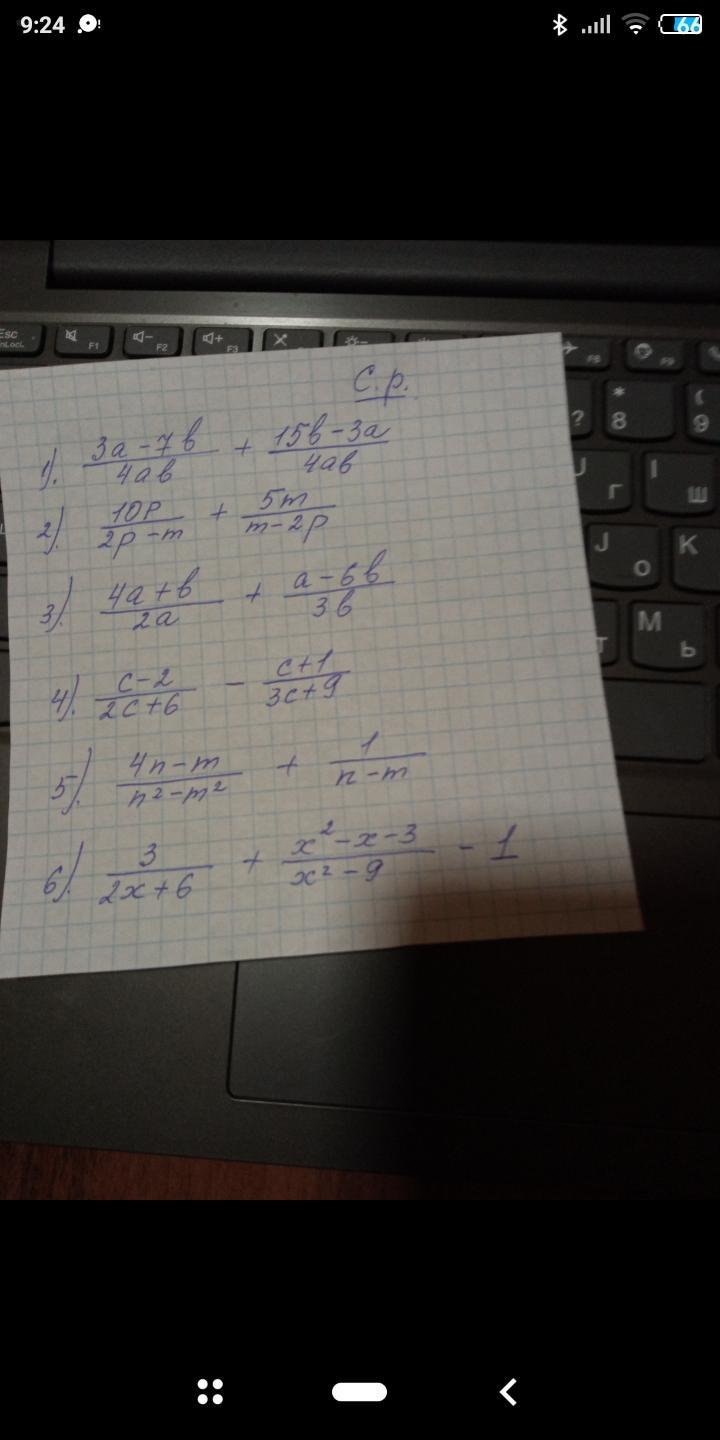 9:24
66
Esc
F1
F2
F3
F8
F9
* 8
( 9
?
Г
Ш
J О
K
М Ь
С.р.
1). (3a-7b)/(4ab) + (15b-3a)/(4ab)
2). (10p)/(2p-m) + (5m)/(m-2p)
3). (4a+b)/(2a) + (a-6b)/(3b)
4). (c-2)/(2c+6) - (c+1)/(3c+9)
5). (4n-m)/(n²-m²) + 1/(n-m)
6). 3/(2x+6) + (x²-x-3)/(x²-9) - 1